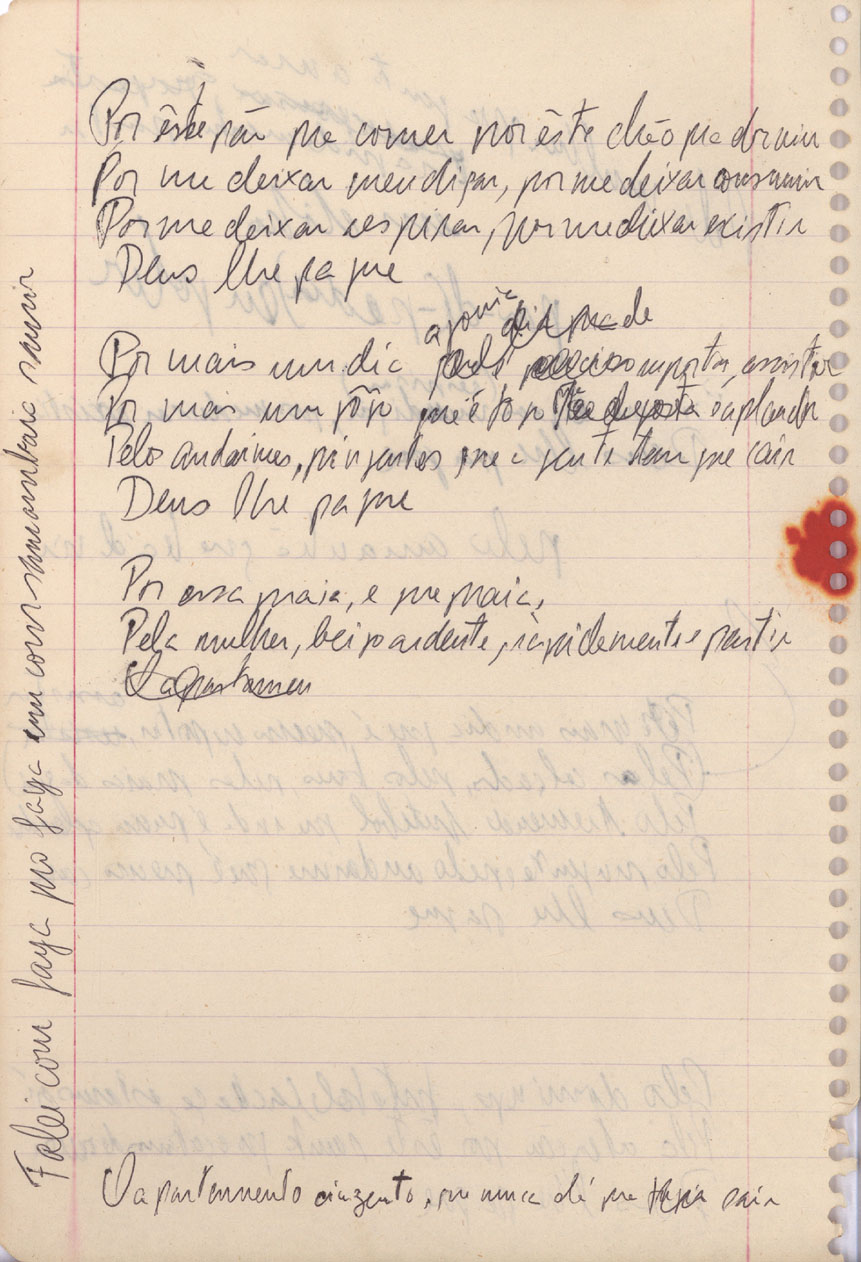 Por êste pão pra comer por êste chão pra dormir
Por me deixar mendigar, por me deixar consumir
Por me deixar respirar, por me deixar existir
Deus lhe pague
agonia pra de
Por mais um dia suportar, assistir
Por mais um jôgo que é to aplaudir
Pelos andaimes, pingentes que a gente tem que cair
Deus lhe pague
Por essa praia, e que praia,
Pela mulher, beijo ardente, ràpidamente e partir
O apartamen
O apartamento cinzento, que nunca dá pra sair
Falei com faya pro faya com